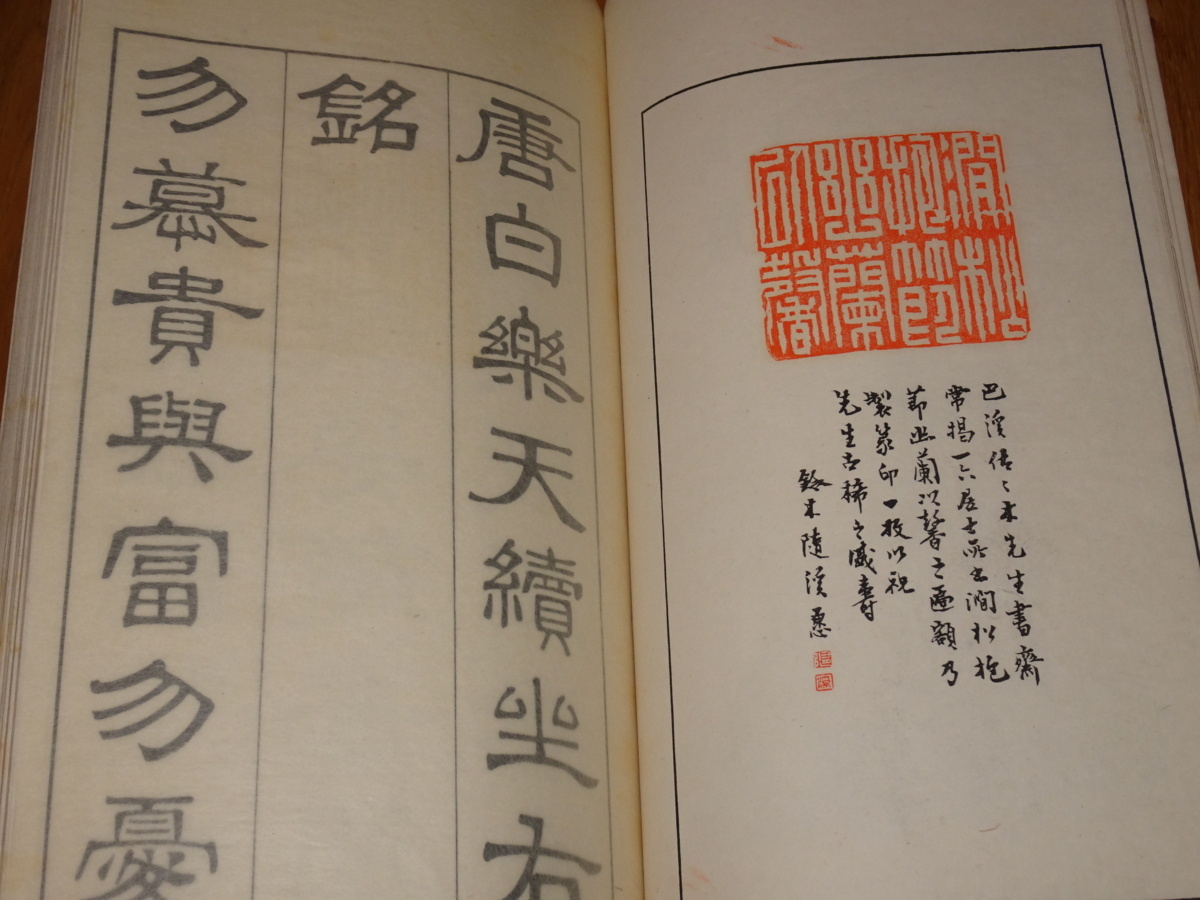 澗松
抱節
幽蘭
以馨
巴溪佐々木先生書齋
常揭一六居士所書澗松抱
節幽蘭以馨之匾額乃
製篆印一枚以祝
先生古稀之盛壽
鈴木隨溪
唐白樂天續坐右
銘
勿慕貴與富勿憂